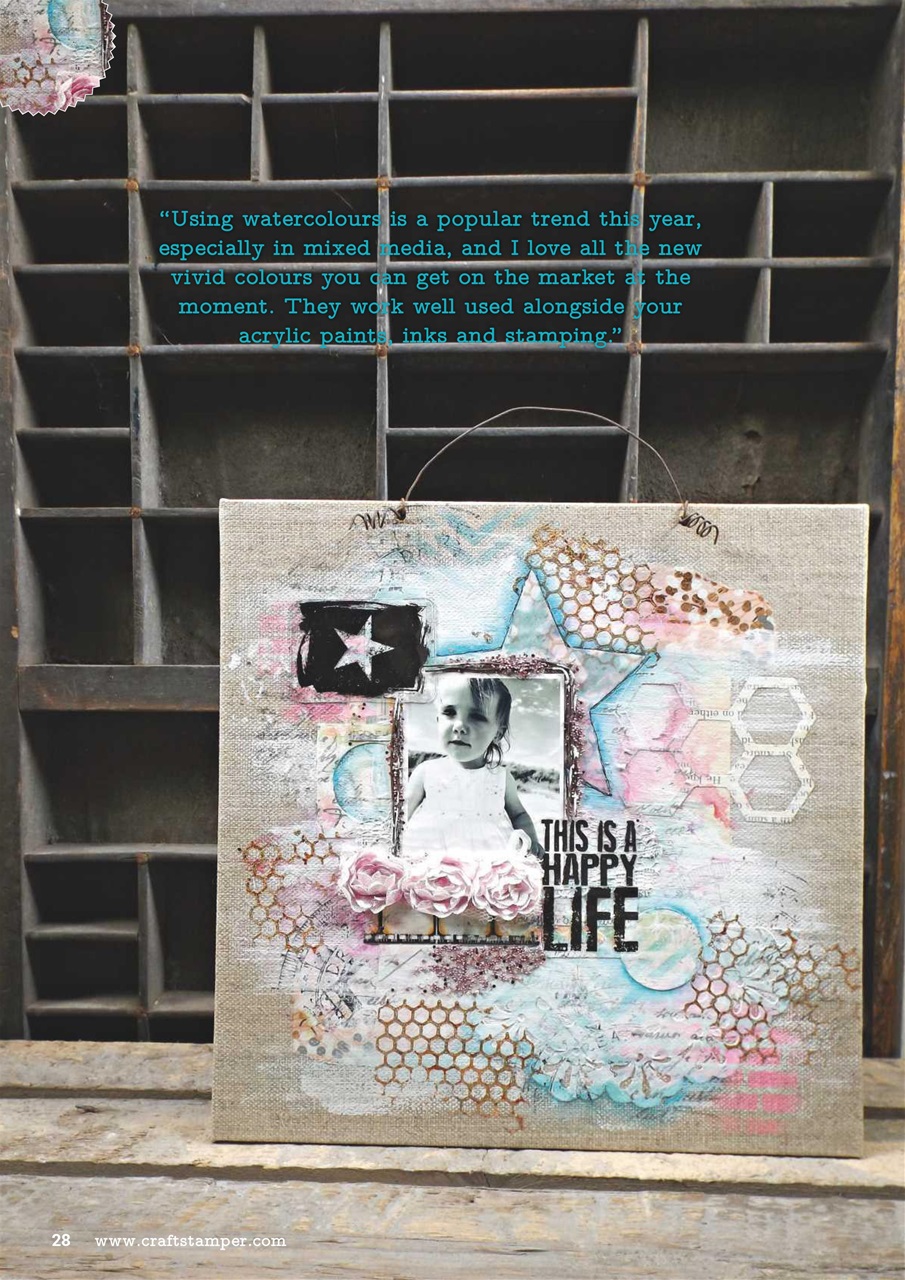 “Using watercolours is a popular trend this year,
especially in mixed media, and I love all the new
vivid colours you can get on the market at the
moment. They work well used alongside your
acrylic paints, inks and stamping.”
THIS IS A
HAPPY
LIFE
28 www.craftstamper.com